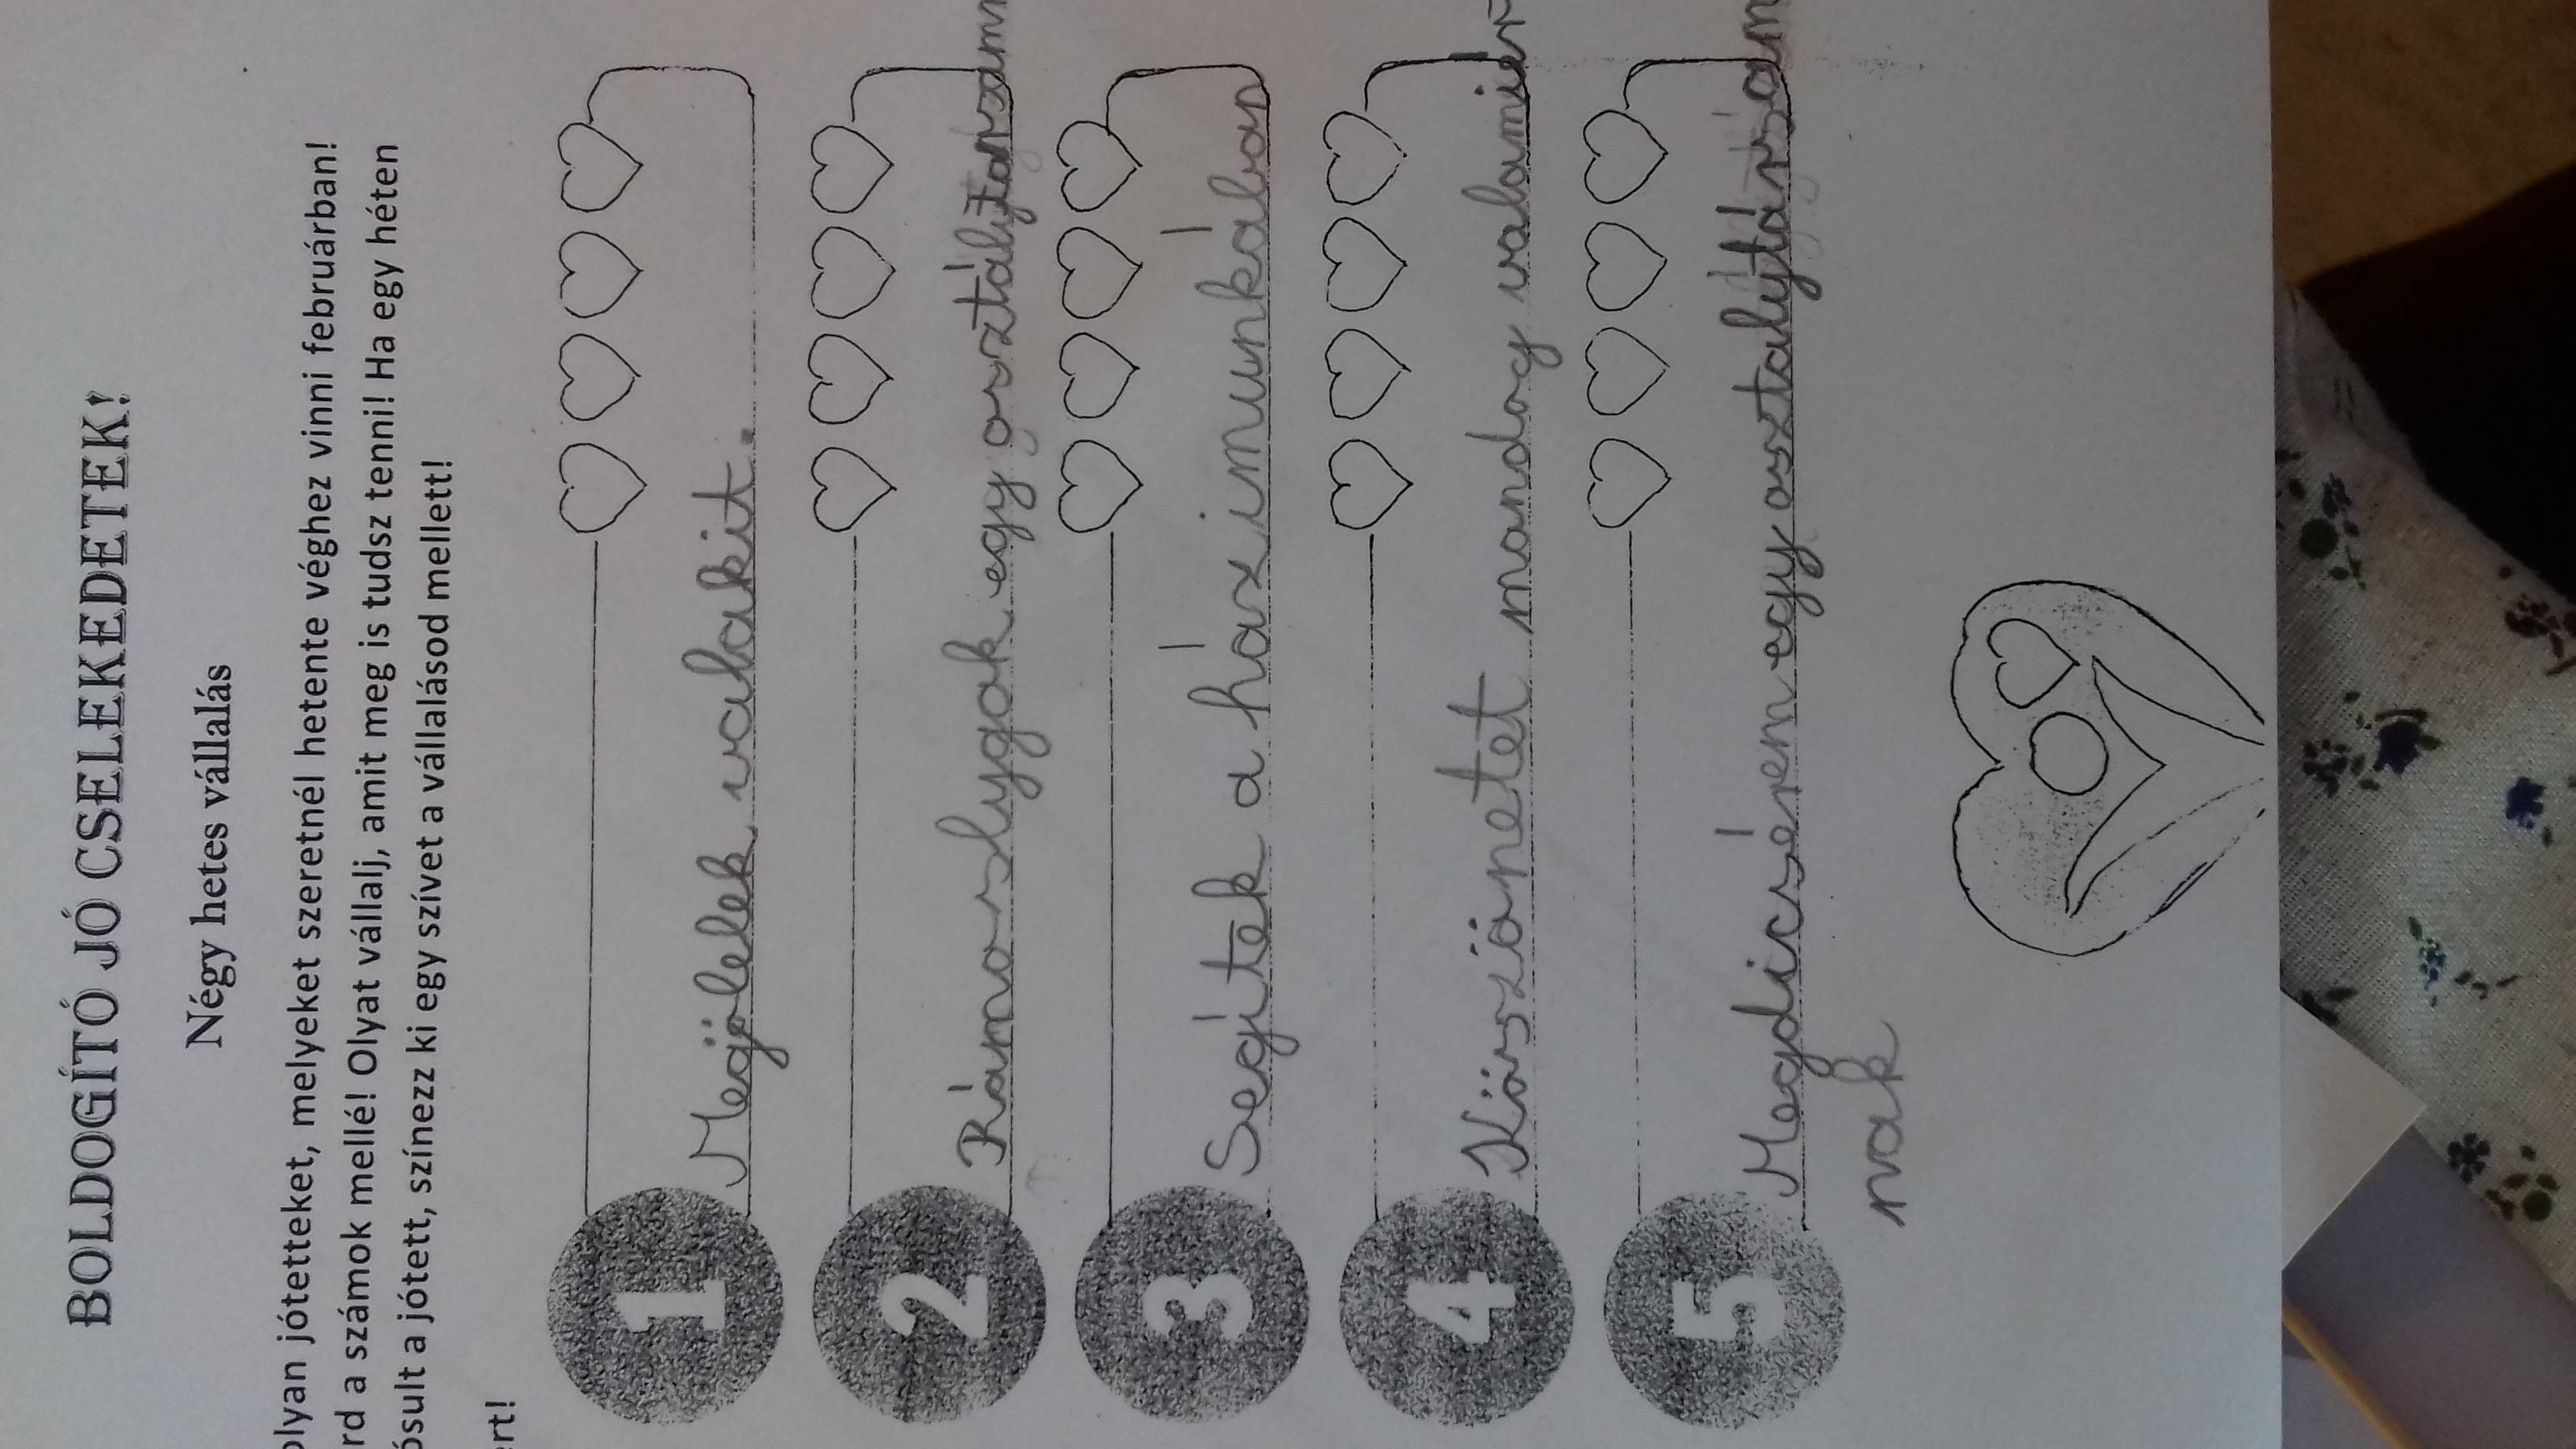 BOLDOGÍTÓ JÓ CSELEKEDETEK!
Négy hetes vállalás
olyan jótetteket, melyeket szeretnél hetente véghez vinni februárban!
rd a számok mellé! Olyat vállalj, amit meg is tudsz tenni! Ha egy héten
ósult a jótett, színezz ki egy szívet a vállalásod mellett!
ert!
1 Megölelek valakit.
2 Rámoslygok egy osztálytarsamr
3 Segítek a háximunkában
4 Köszönetet mondog valamiér
5 Megdicsérem egy osztalytársam
nak